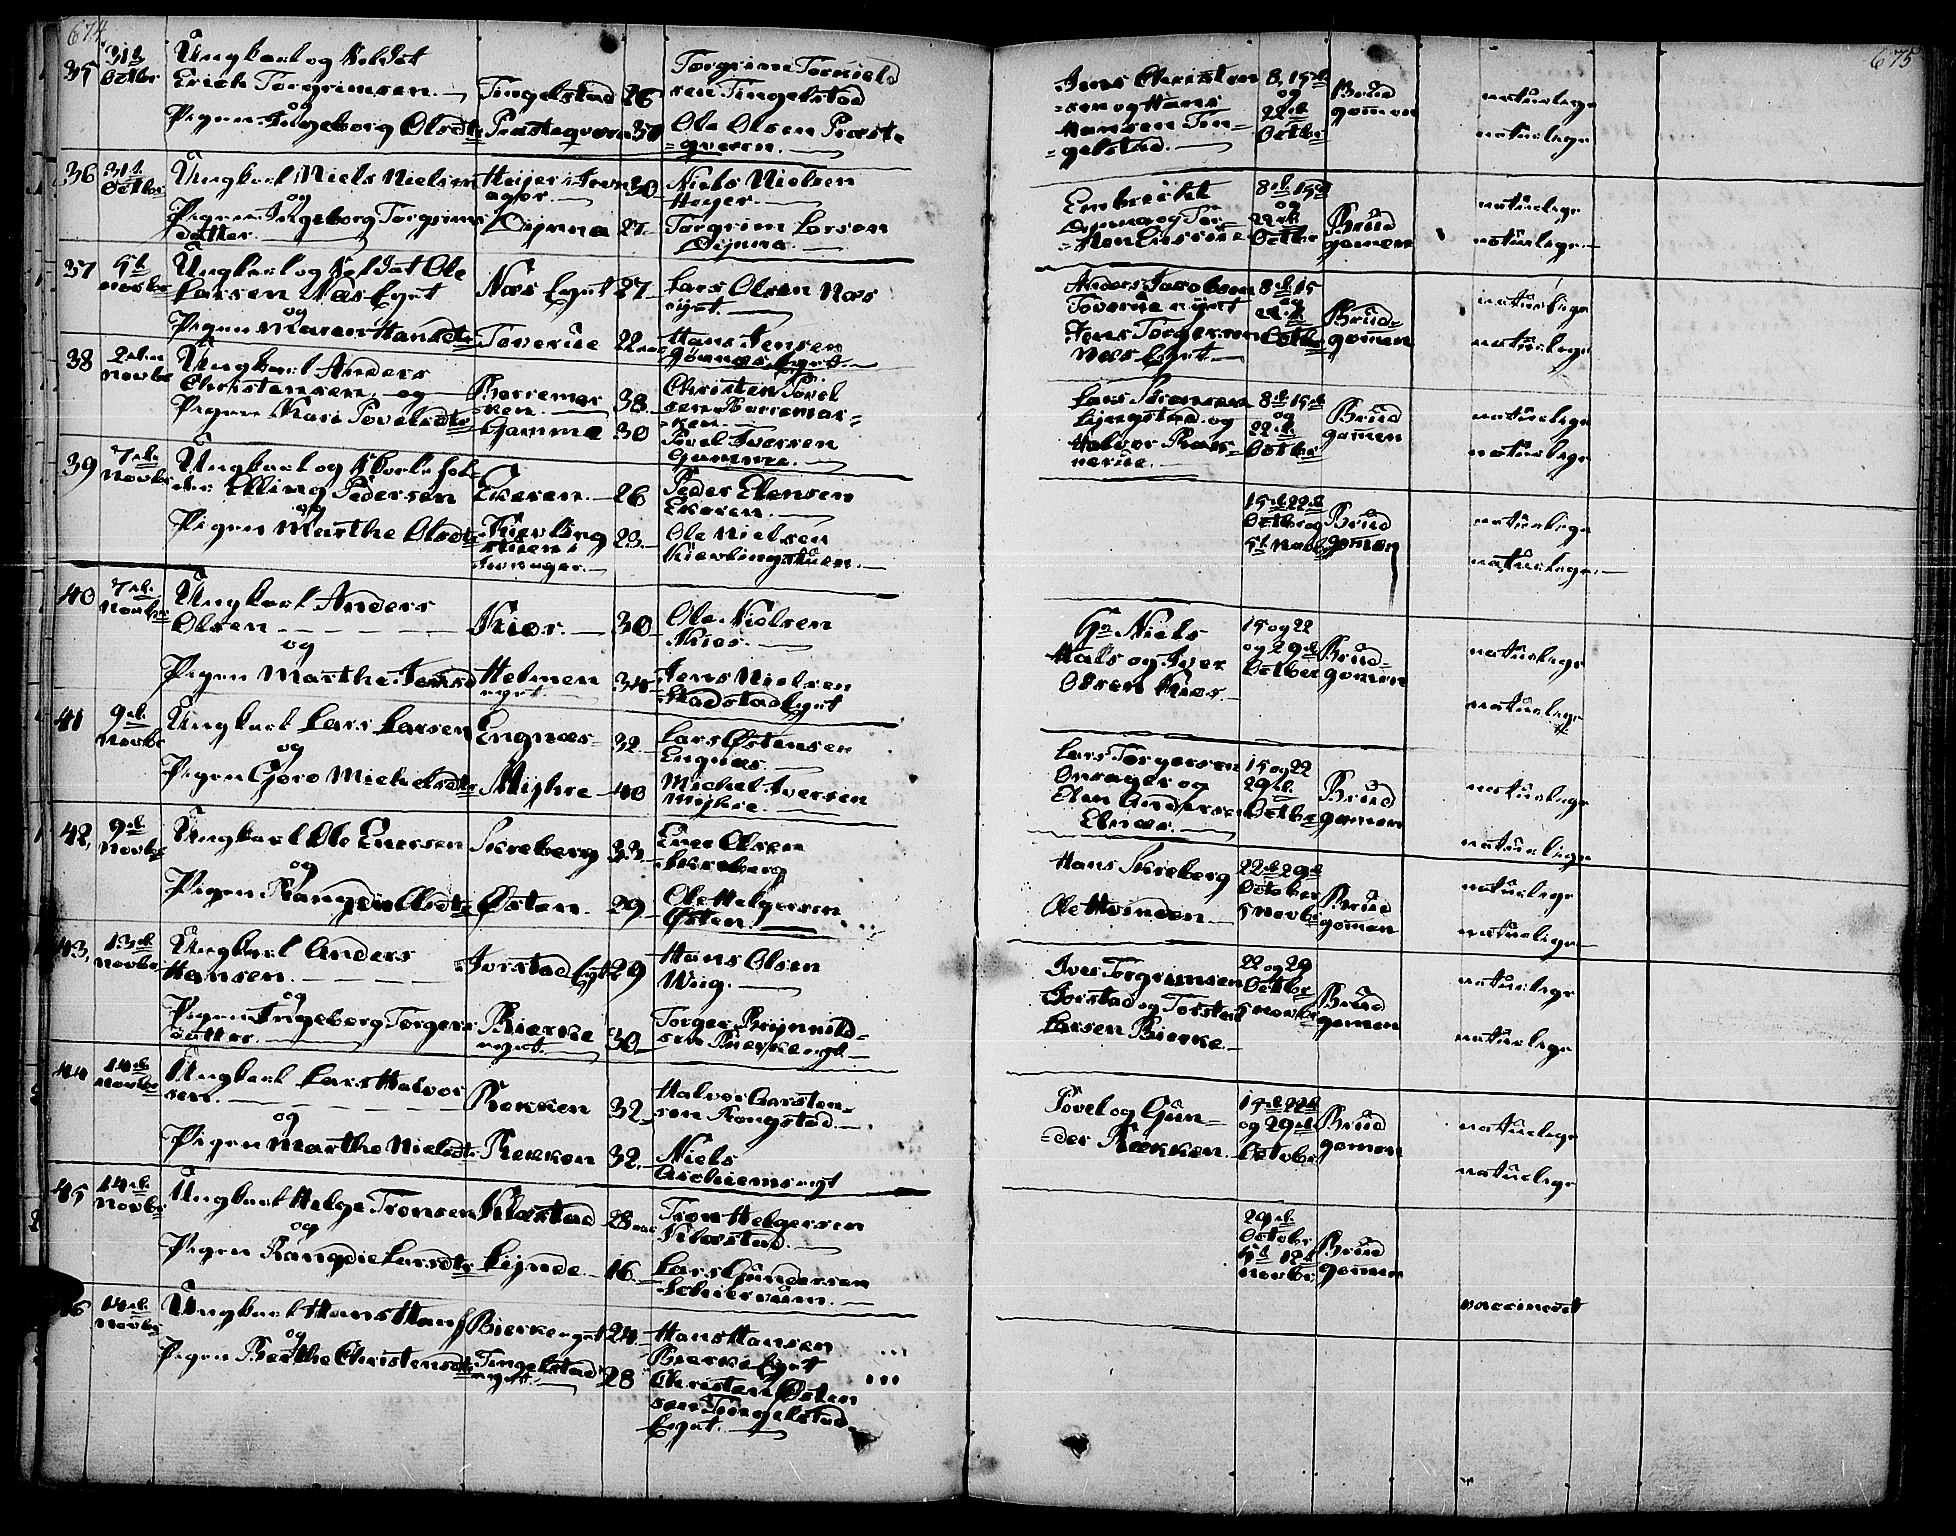 674
35 31te Octbr
Ungkarl og Soldat
Erich Torgrimsen. Tingelstad 26
og
Pigen Ingeborg Olsdtr Præsteqvern 30
Torgrim Torkield
sen Tingelstad
Ole Olsen Præste
=qvern.
36 31te Octbr
Ungkarl Niels Nielsen
og
Pigen Ingeborg Torgrims
datter. Dynna 27
30 Niels Nielsen
Høyer.
Torgrim Larsen
Dynna.
37 5te Novbr
Ungkarl og Soldat Ole
Larsen Næs Eyet Næs Eyet 27
og
Pigen Maren Hansdtr Toverue 22
Lars Olsen Næs
eyet.
Hans Jensen
38 2den Novbr
Ungkarl Anders
Christensen og 38
Pigen Kari Povelsdtr Gamme 30
Christen Povel
sen
Povel Iversen
Gamme.
39 7de Novbr
Ungkarl og
Elling Pedersen Ekeren 26
og
Pigen Marthe Olsdtr Kierling
stuen i 23
Peder
Ekeren.
Ole Nielsen
Kierlingstuen.
40 7de Novbr
Ungkarl Anders
Olsen Kior. 30
og
Pigen Marthe Jensd Helmen
eyet 34
Ole Nielsen
Kior.
Jens Nielsen
Hadstad Eyet
41 9de Novbr
Ungkarl Lars Larsen Engnæs 32
og
Pigen Goro Michelsdtr Myhre 40
Lars Østensen
Engnæs.
Michel Iversen
Myhre.
42, 9de Novbr
Ungkarl Ole Enersen Skreberg 33
og
Pigen Rangdie Olsdtr Østen. 29
Ener Olsen
Skreberg
Ole Helgersen
Østen.
43, 13de Novbr
Ungkarl Anders
Hansen. Jorstad Eyet 29
og
Pigen Ingeborg Torgers
datter. Bierke
eyet. 30
Hans Olsen
Wiig.
Torger Brynnild
sen Bierke eyet
44 14de Novbr
Ungkarl Lars Halvor
sen. Røkken 32
og
Pigen Marthe Nielsdtr Røkken 32.
Halvor Carsten
sen Rongstad.
Niels
Aschiemseyet
45 14de Novbr
Ungkarl Helge Tronsen 28
og
Pigen Rangdie Larsdtr Lynde 16
Tron Helgersen
Lars Gundersen
46 14de Novbr
Ungkarl Hans Hans Bierke eyet 24
og
Pigen Berthe Christensdtr Tingelstad
eyet. 28
Hans Hansen
Bierke Eyet
Christen Østen
sen Tingelstad
Eyet.
675
Jens Christen
=sen og Hans
Hansen Tin=
=gelstad.
8, 15de
og
22de
Octbr
Brud
gomen
naturlige
naturlige
Embricht
Dynna og Tor=
8de 15de
og
22de
Octbr
Brud
gomen
naturlige
naturlige
Anders Jacobsen
Toverue eyet
Jens Torgersen
Næs Eyet
8de 15
og
22de
Octbr
Brud=
gomen
naturlige
naturlige
Lars
Lyngstad og
Halvor
8de 15de
og
22de
Octbr
Brud
gomen
naturlige
naturlige
15de 22de
Octbr og
5te Novbr
Brud
gomen
naturlige
naturlige
Niels
Hals og Iver
Olsen Kior
15 og 22
og 29de
Octbr
Brud=
gomen
naturlige
naturlige
Lars Torgersen
Onsager og
Elen Andersen
Elnæs.
15 og 22
29de
Octbr
Brud
gomen
naturlige
naturlige
Hans Skreberg
Ole Hvinden
22de 29de
October
5 Novbr
Brud
gomen
naturlige
naturlige
Iver Torgrimsen
Jorstad og Torstad
Larsen Bierke.
22 og 29
Octbr
5 Novbr
Brud
gomen
naturlige
naturlige
Povel og Gun=
=der Røkken.
15de 22de
og 29de
Octobr
Brud
gomen
naturlige
naturlige
29de
Octobr
5te 12te
Novbr
Brud
gomen
vaccineret